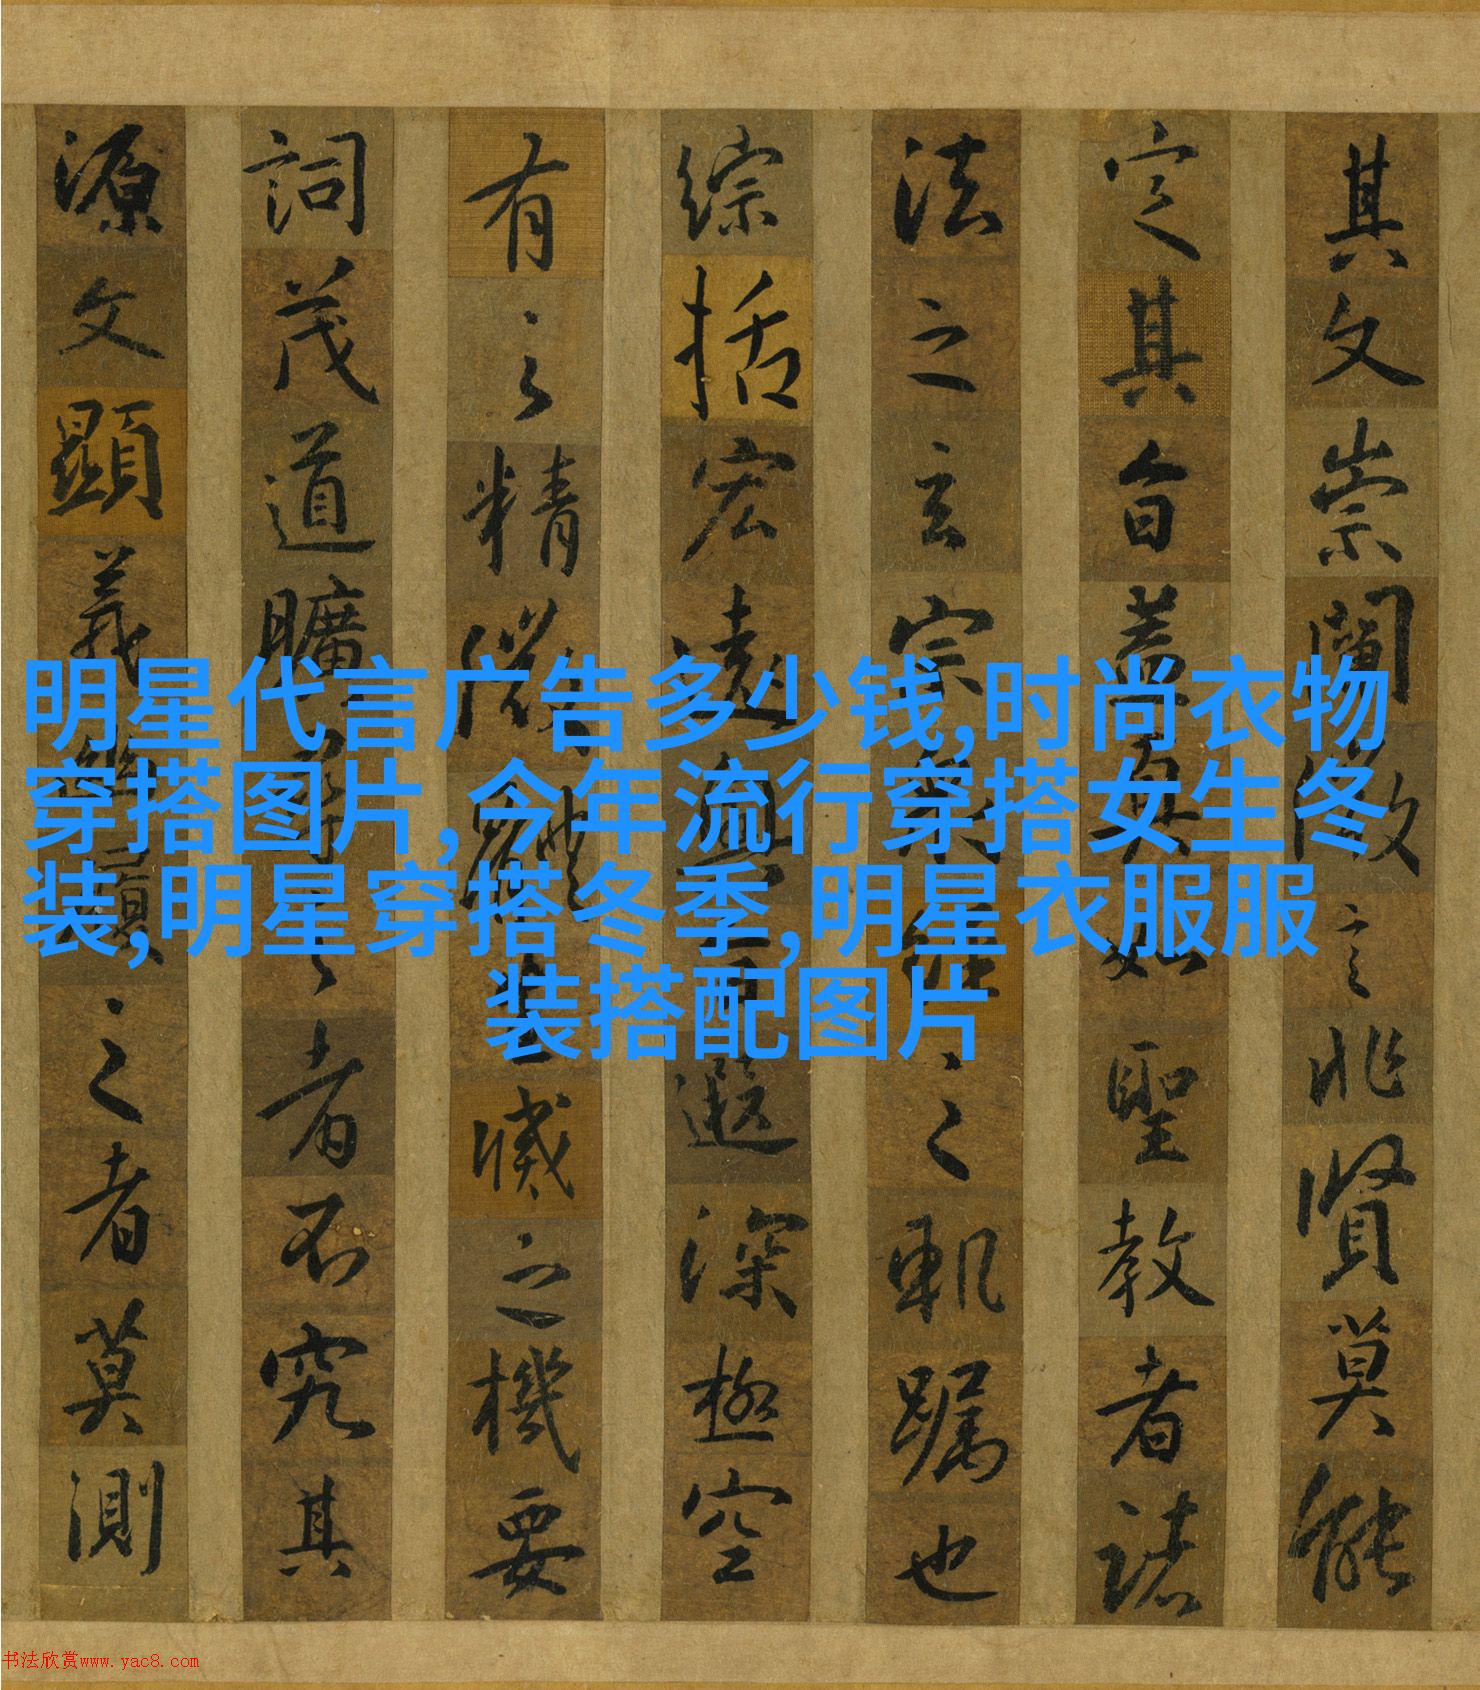 其文崇闡微言非賢莫能
定其旨蓋真如聖教者諸
法之玄宗眾經之軌躅也
綜括宏遠奧旨遐深極空
有之精微體生滅之機要
詞茂道曠尋之者不究其
源文顯義幽履之者莫測
明星代言广告多少钱,时尚衣物
穿搭图片,今年流行穿搭女生冬
装,明星穿搭冬季,明星衣服服
装搭配图片
书法欣赏www.yac8.com